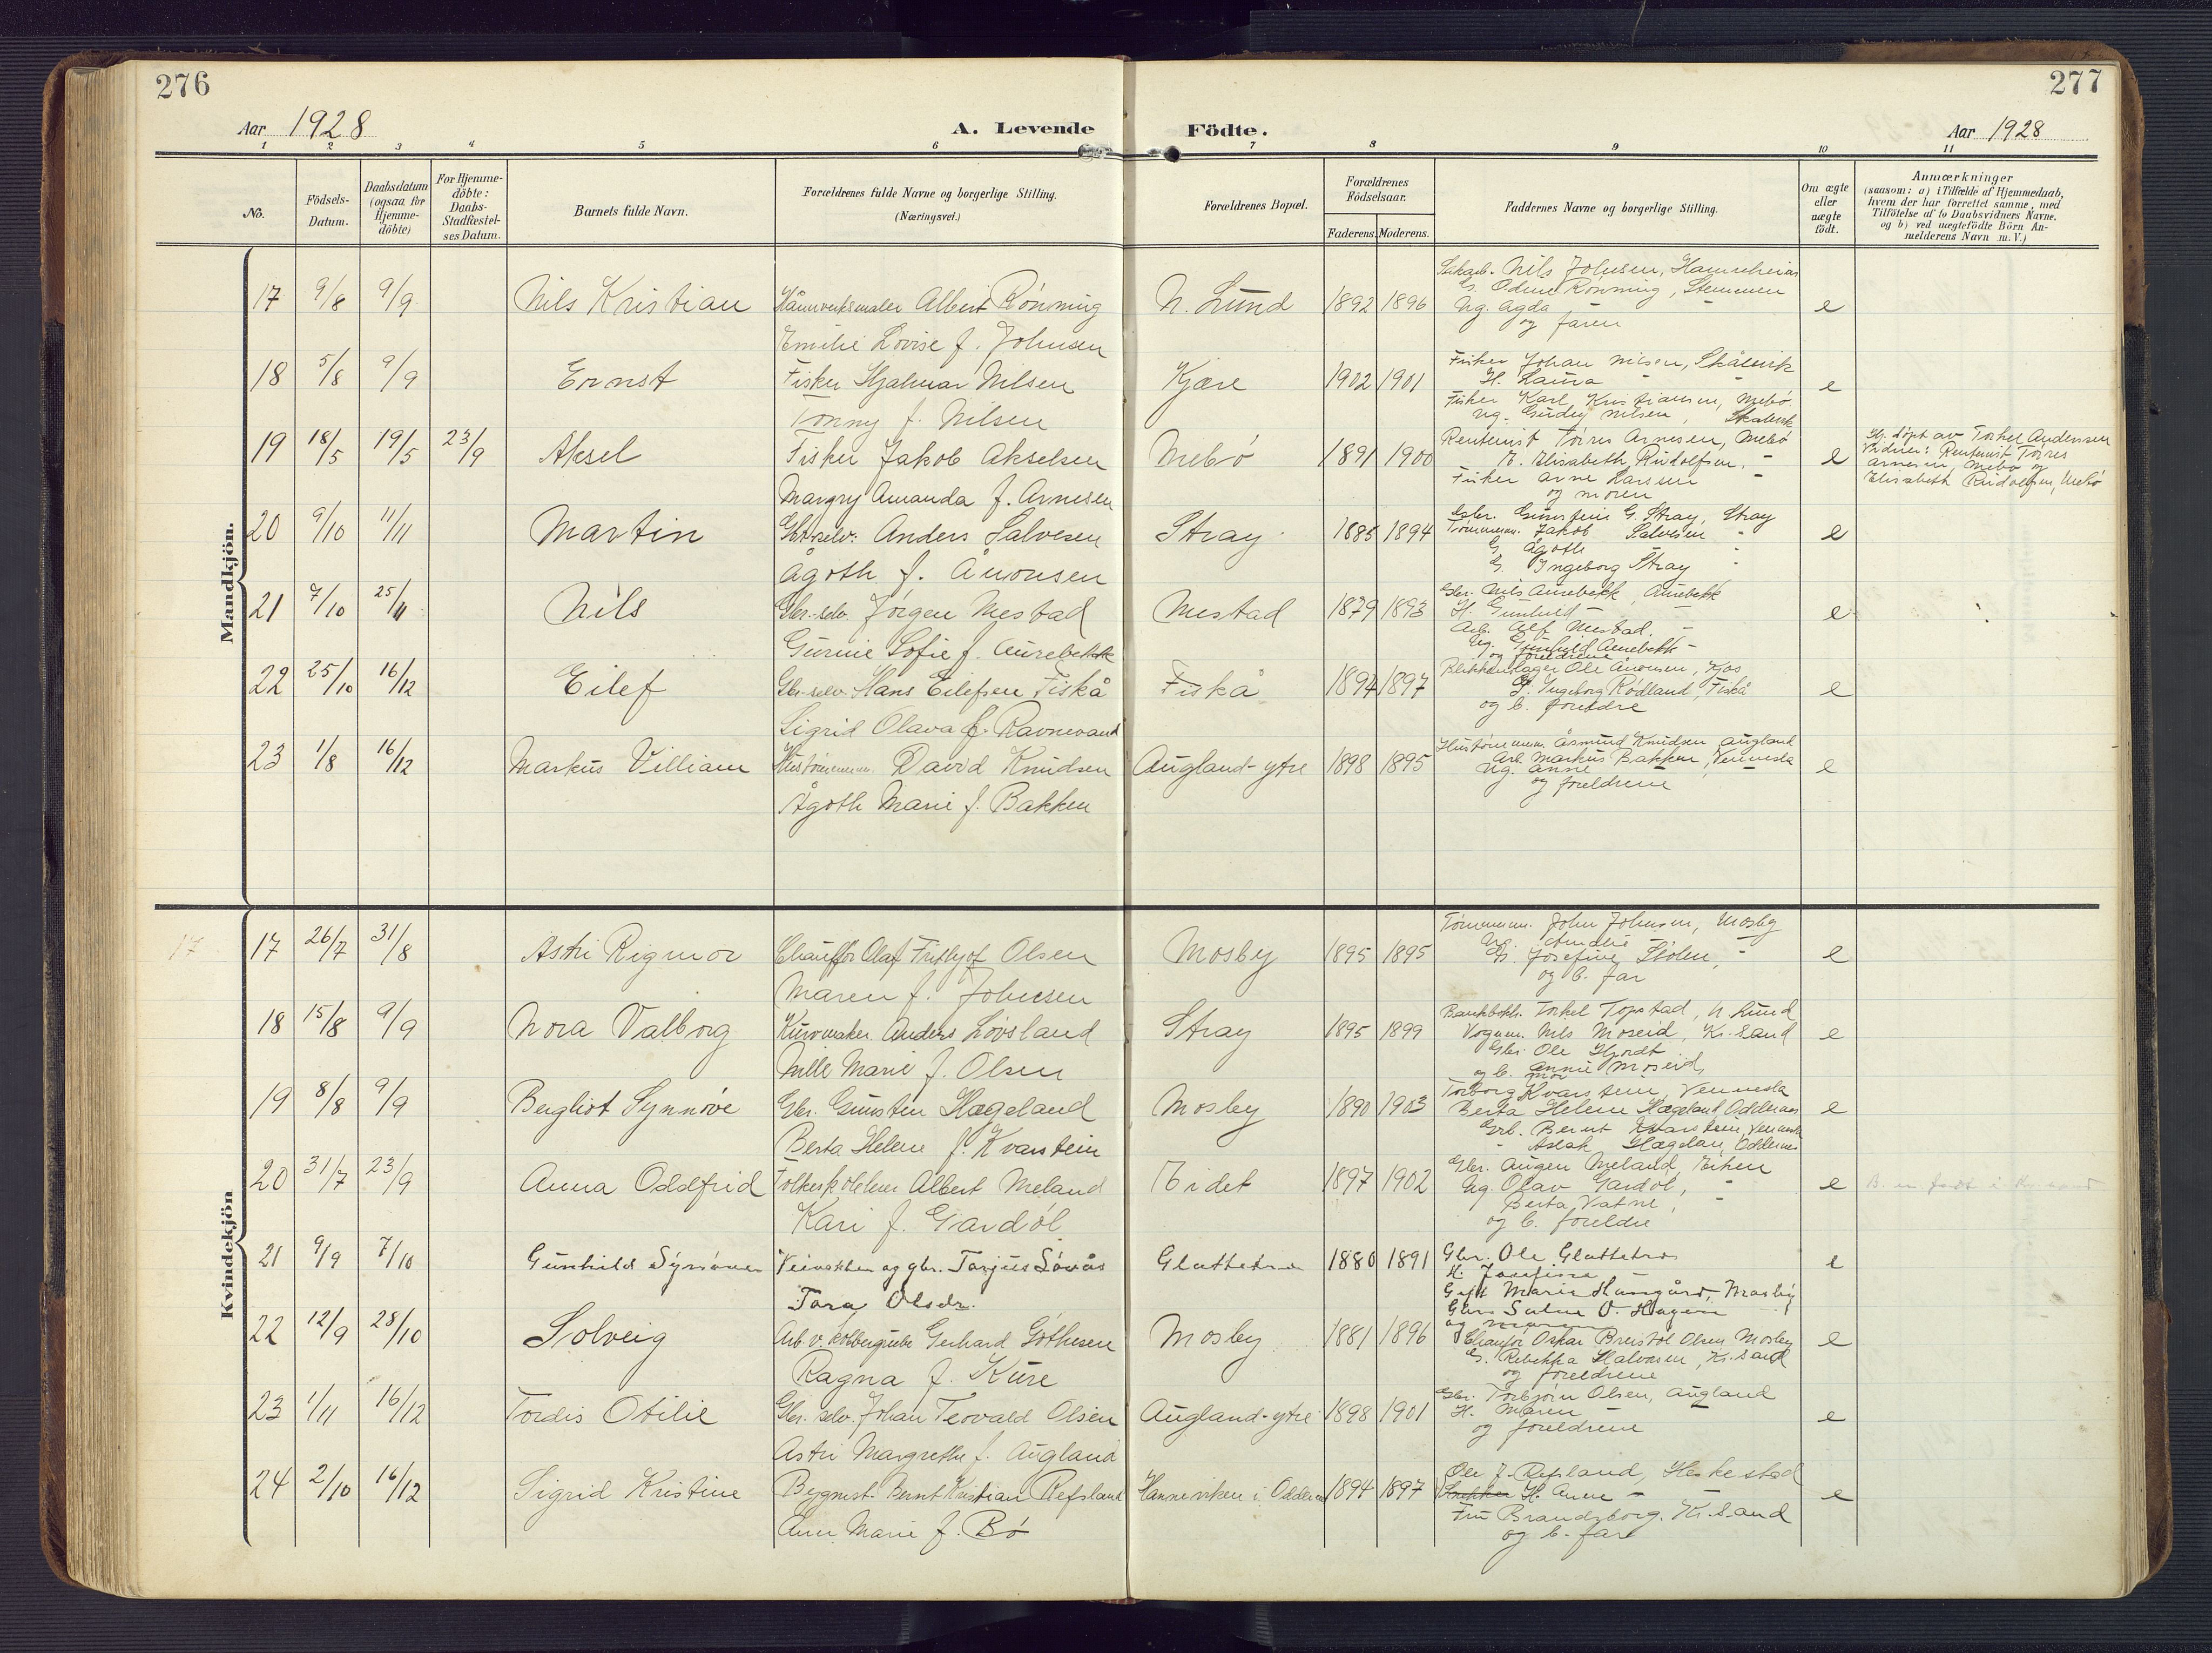 276
277
Aar 1928
A. Levende
Födte.
Aar 1928
1 2 3 4 5 6 7 8 9 10 11
No.
Födsels-Datum.
Daabsdatum (ogsaa for Hjemme-döbte)
For Hjemme-döbte: Daabs-Stadfæstel-ses Datum.
Barnets fulde Navn.
Forældrenes fulde Navne og borgerlige Stilling.
(Næringsvei.)
Forældrenes Bopæl.
Forældrenes Födselsaar.
Faderens. Moderens.
Faddernes Navne og borgerlige Stilling.
Om ægte eller uægte födt.
Anmærkninger
(saasom: a) i Tilfælde af Hjemmedaab,
hvem der har forrettet samme, med
Tilföielse af to Daabsvidners Navne,
og b) ved uægtefödte Börn An-
melderens Navn m. V.)
Mandkjön.
17 9/8 9/9 Nils Kristian Albert Rönning N. Lund 1892 1896 e
Emilie Lovise f. Johnsen
Nils Johnsen,
G. Odine Rönning, Stemmen
Ug. Agda
og faren
18 5/8 9/9 Ernst Fisker Hjalmar Nilsen Kjære 1902 1901 e
Tonny f. Nilsen
Fisker Johan Nilsen, Skålevik
H. Laura - -
Fisker Karl Kristiansen, Mebö
Ug. Nilsen, Skålevik
19 18/5 19/5 23/9 Aksel Fisker Jakob Akselsen Mebö 1891 1900 e
Margry Amanda f. Arnesen
Rentenist Törres Arnesen, Mebö
E. Elisabeth Rudolfsen, -
Fisker Arne Larsen -
og moren
Hj. döpt av Torkel Andersen
Vidner: Rentenist Törres
Arnesen, Mebö og
Elisabeth Rudolfsen, Mebö
20 9/10 11/11 Martin Gbr.selv. Anders Salvesen Stray 1885 1894 e
Ågoth f. Åvonsen
Gbr. G. Stray, Stray
Tömmerm. Jakob Salvesen -
G. Ågoth -
G. Ingeborg Stray -
21 7/10 25/11 Nils Gbr.-selv. Jörgen Mestad Mestad 1879 1893 e
Gunnie Sofie f. Aurebekk
Gbr. Nils Aurebekk, Aurebekk
H. Gunhild - -
Arb. Alf Mestad, -
Ug. Gunhild Aurebekk -
og foreldrene
22 25/10 16/12 Eilef Gbr.-selv. Hans Eilefsen Fiskå Fiskå 1894 1897 e
Sigrid Olava f. Ravnevand
Blikkenslager Ole Ånonsen, Kjos
G. Ingeborg Rödland, Fiskå
og b. foreldre
23 1/8 16/12 Markus Villiam Hustömmerm. David Knudsen Augland-ytre 1898 1895 e
Ågoth Marie f. Bakken
Hustömmerm. Åsmund Knudsen Augland
Arb. Markus Bakken, Vennesla
Ug. Anne - -
og foreldrene
Kvindekjön
17
17 26/7 31/8 Astri Rigmor Chaufför Olaf Fritjof Olsen Mosby 1895 1895 e
Maren f. Johnsen
Tömmerm. John Johnsen, Mosby
Ug. Amalie - -
G. Josefine Stölen, -
og b. far
18 15/8 9/9 Nora Valborg Kurvmaker Anders Lövsland Stray 1895 1899 e
Mille Marie f. Olsen
Bankbokh. Torkel Topstad, N. Lund
Vognm. Nils Moseid, Kr.sand
Gbr. Ole Hjordt
Annie Moseid,
og b. mor
19 8/8 9/9 Bergliot Synnöve Gbr. Gunsten Hægeland Mosby 1890 1903 e
Berta Helene f. Kvarstein
Torborg Kvarstein, Vennesla
Berta Helene Hægeland, Oddernes
Gbr. Bernt Kvarstein, Vennesla
- Aslak Hægeland, Oddernes
20 31/7 23/9 Anna Oddfrid Folkeskolelærer Albert Meland 1897 1902 e
Kari f. Gardöl
Gbr. Augen Meland, Eiken
Ug. Olav Gardöl, -
Berta Vatne, -
og b. foreldre
B. er födt i Kr.sand
21 9/9 7/10 Gunhild Synöve og gbr. Tarjus Sövås Glattetre 1880 1891 e
Tora Olsdr.
Gbr. Ole Glattetre
H. Josefine -
Gift Marie Haugård, Mosby
O. Hagen -
og moren
22 12/9 28/10 Solveig Arb. v. Gerhard Göthesen Mosby 1881 1896 e
Ragna f. Kure
Chauför Oskar Breistöl Olsen Mosby
G. Rebekka Halvorsen, Kr.sand
og foreldrene
23 1/11 16/12 Tordis Otilie Gbr. selv. Johan Teovald Olsen Augland-ytre 1898 1901 e
Astri Margrethe f. Augland
Gbr. Torbjörn Olsen, Augland
H. Maren - -
og foreldrene
24 2/10 16/12 Sigrid Kristine Bygmst. Bernt Kristian Refsland Hanneviken i Oddernes 1894 1897 e
Ann Marie f. Bö
Ole J. Refsland, Heskestad
H. Anne - -
Fru Brandsborg, Kr.sand
og b. fare